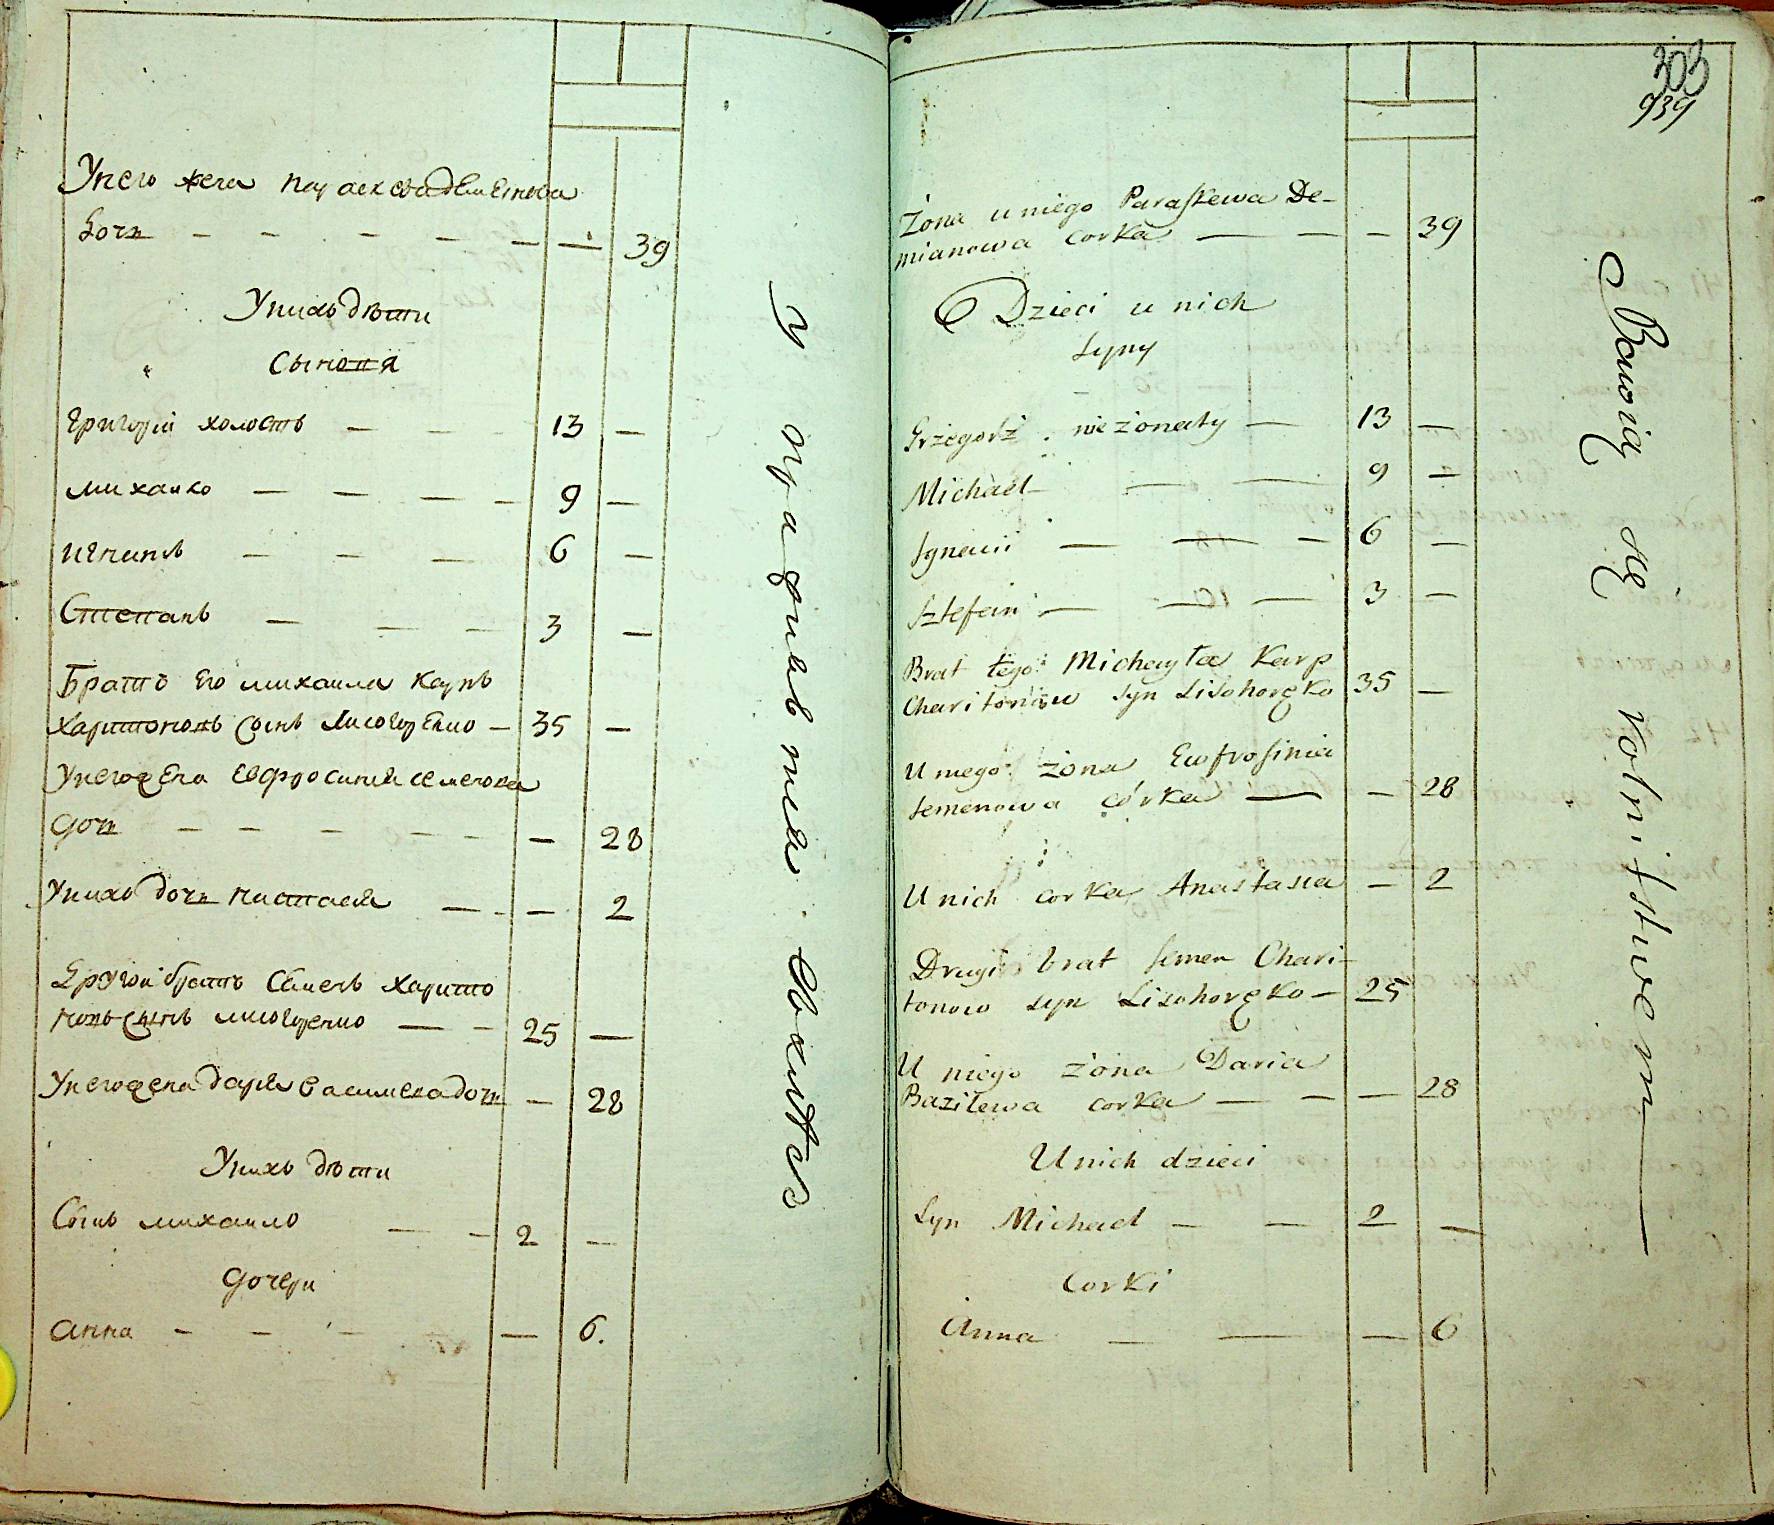 Унего жена Параскева Дементиева
Дочь — — — — — — — 39
Унихъ дѣти
Сыновя
Григорій холостъ — — 13 —
михайло — — — — 9 —
игнатъ — — — 6 —
Степанъ — — — 3 —
Братъ Его михаила карпъ
харитоновъ сынъ Лисогоренко — 35 —
Унего жена Евфросиния семенова
дочь — — — — — — — 28
Унихъ дочь настасия — — — 2
Другой братъ Семенъ харито
новъ сынъ лисогоренко — — 25 —
Унего жена дария василева дочь — 28
Унихъ дѣти
Сынъ михаило — — 2 —
Дочери
анна — — — — 6.
У праднываниемъ
303
939
Żona u niego Paraskewa De-
mianowa corka — — — 39
Dzieci u nich
Syny
Grzegorz nieżonaty — 13 —
Michael — — 9 —
Ignacii — — — 6 —
Sztefan — — — 3 —
Brat tego Michayła Karp
Charitonow syn Lisohoręko 35 —
U niego żona Ewfrosinia
Semenowa córka — — 28
U nich corka Anastasia — 2
Drugi brat Semen Chari-
tonow syn Lisohoręko — 25
U niego żona Daria
Bazilewa corka — — — 28
U nich dzieci
Syn Michael — — 2 —
Corki
Anna — — — 6
Bawią się rolnistwem —